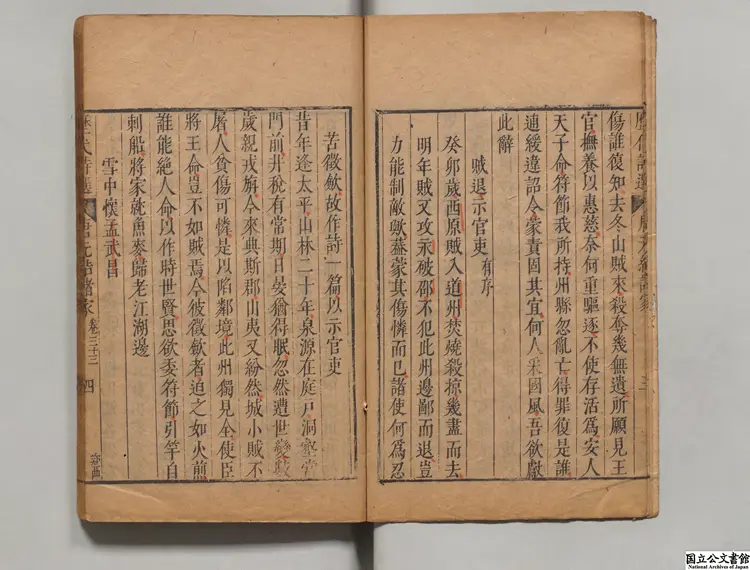 傷誰復知去冬山賊來殺奪幾無遺所願見王
官撫養以惠慈奈何重驅逐不使存活爲安人
天子命符節我所持州縣忽亂亡得罪復是誰
逋緩違詔令蒙責固其宜何人采國風吾欲獻
此辭
賊退示官吏 有序
癸卯歲西原賊入道州焚燒殺掠幾盡而去
明年賊又攻永破邵不犯此州邊鄙而退豈
力能制敵歟蓋蒙其傷憐而已諸使何爲忍
苦徵歛故作詩一篇以示官吏
昔年逢太平山林二十年泉源在庭戸洞壑當
門前井稅有常期日晏猶得眠忽然遭世變數
歲親戎旃今來典斯郡山夷又紛然城小賊不
屠人貧傷可憐是以陷鄰境此州獨見全使臣
將王命豈不如賊焉今彼徵歛者迫之如火煎
誰能絕人命以作時世賢思欲委符節引竿自
刺船將家就魚麥歸老江湖邊
雪中懷孟武昌
歷代詩選 唐元結諸家 卷三十三 四
国立公文書館
National Archives of Japan